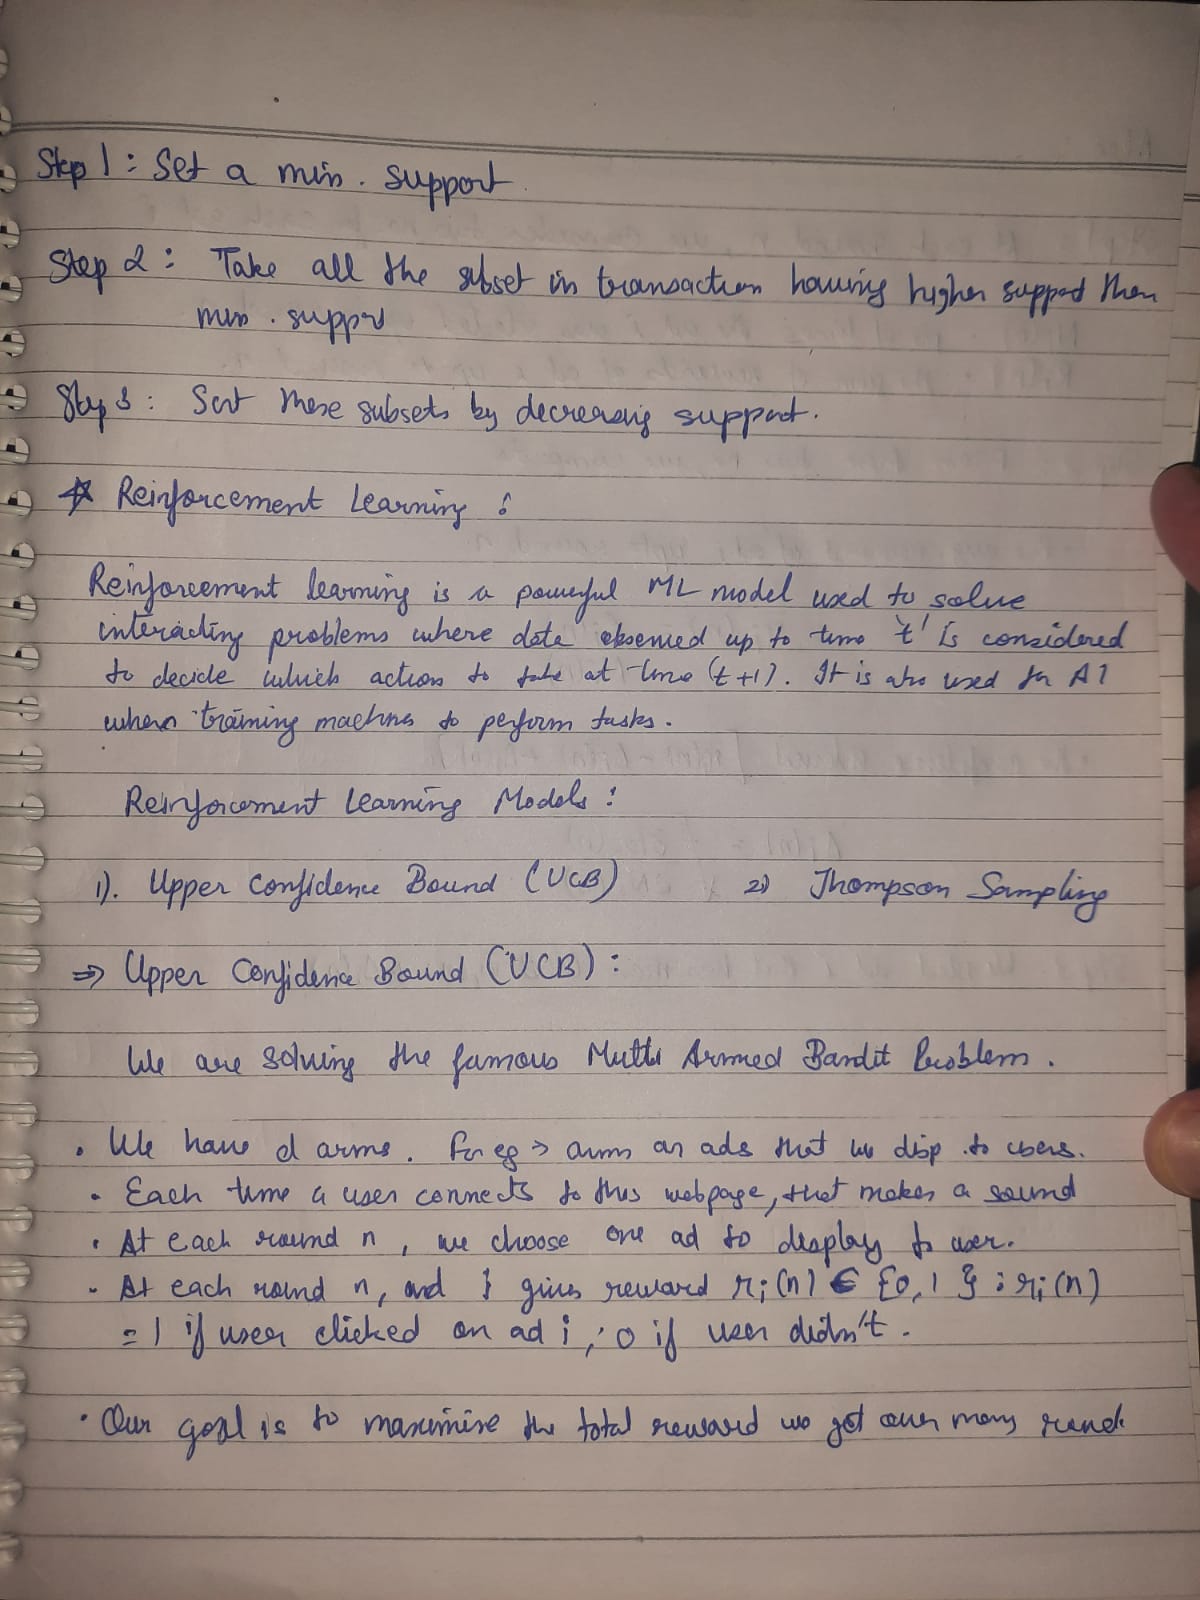 Step 1 : Set a min. support
Step 2 : Take all the subset in transaction having higher support than
min. support
Step 3 : Sort these subsets by decreasing support.
☆ Reinforcement Learning :
Reinforcement learning is a powerful ML model used to solve
interacting problems where data observed up to time 't' is considered
to decide which action to take at time (t+1). It is also used for AI
when training machines to perform tasks.
Reinforcement Learning Models :
1). Upper Confidence Bound (UCB) 2) Thompson Sampling
⇒ Upper Confidence Bound (UCB) :
We are solving the famous Multi Armed Bandit Problem.
• We have d arms. For eg → arms are ads that we disp to users.
• Each time a user connects to this webpage, that makes a round
• At each round n, we choose one ad to display to user.
• At each round n, ad i gives reward ri(n) ∈ {0,1} : ri(n)
= 1 if user clicked on ad i, 0 if user didn't.
• Our goal is to maximise the total reward we get over many round